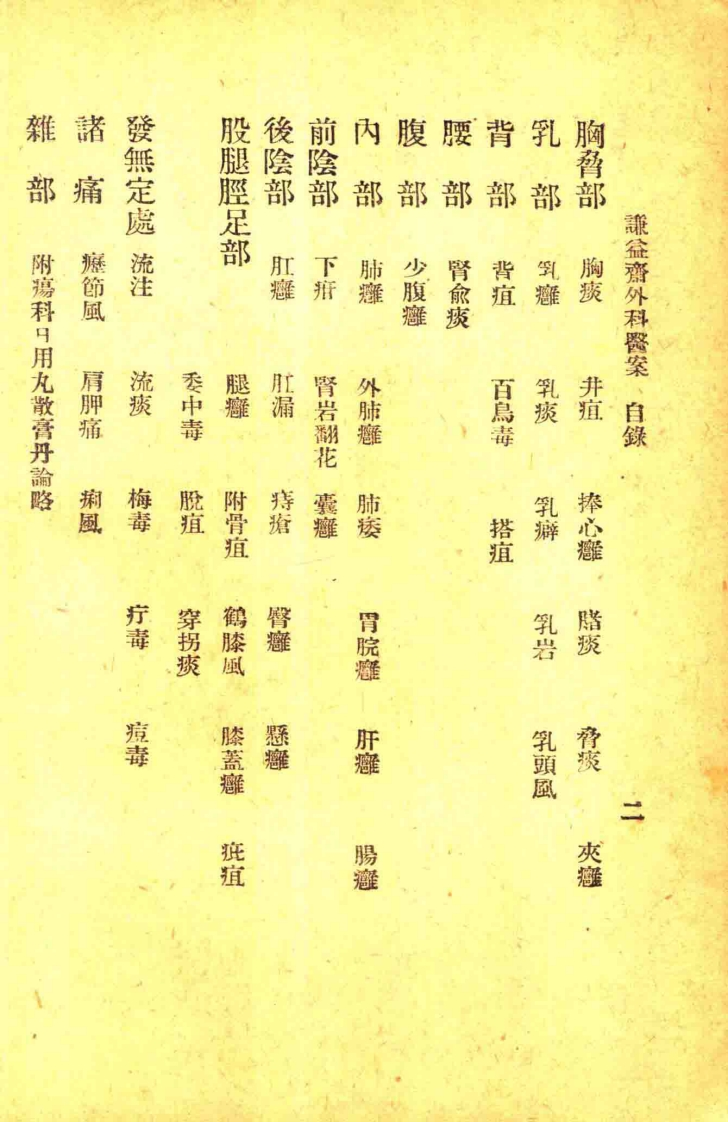 謙益齋外科醫案 目錄 二
胸脅部 胸痰 井疽 捧心癰 賭痰 脅痰 夾癰
乳部 乳癰 乳痰 乳癖 乳岩 乳頭風
背部 背疽 百鳥毒 搭疽
腰部 腎兪痰
腹部 少腹癰
內部 肺癰 外肺癰 肺痿 胃脘癰 肝癰 腸癰
前陰部 下疳 腎岩翻花 囊癰
後陰部 肛癰 肛漏 痔瘡 臀癰 懸癰
股腿脛足部 腿癰 附骨疽 鶴膝風 膝蓋癰 疵疽
委中毒 脫疽 穿拐痰
發無定處 流注 流痰 梅毒 疔毒 痘毒
諸痛 癧節風 肩胛痛 痢風
雜部 附瘍科日用丸散膏丹論略